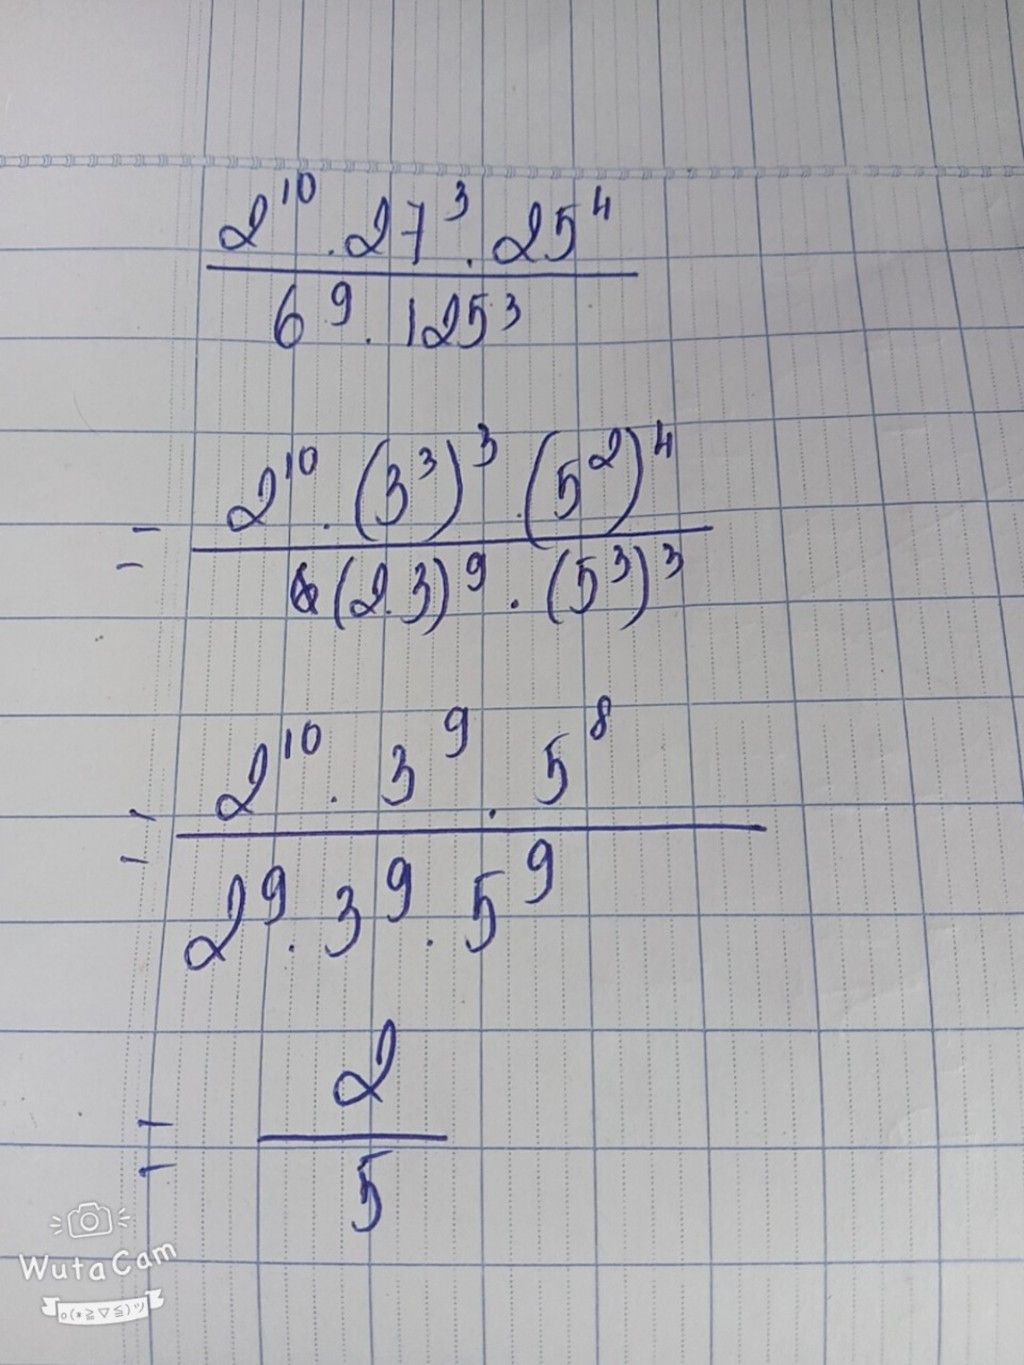 2¹⁰ . 27³ . 25⁴
6⁹ . 125³
= 2¹⁰ . (3³)³ . (5²)⁴
(2.3)⁹ . (5³)³
= 2¹⁰ . 3⁹ . 5⁸
2⁹ . 3⁹ . 5⁹
= 2
5
WutaCam
o(*≧▽≦)ツ